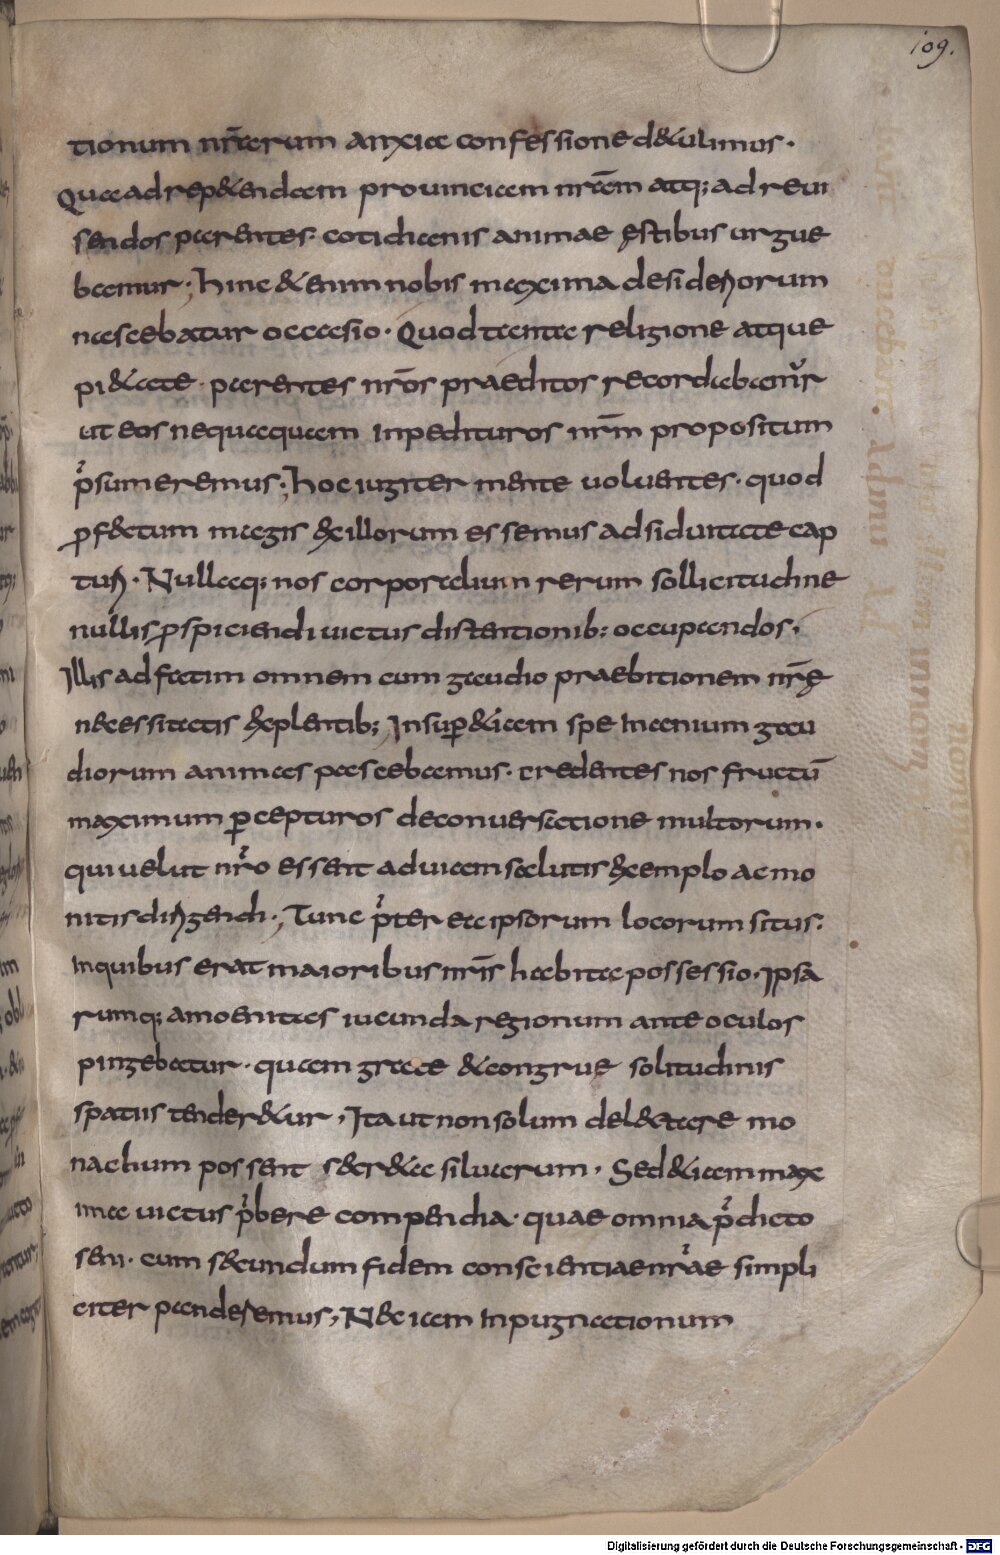 109.
tionum nr̄terum anxiae confessione d&ulimus·
Quae ad rep&endam prouinciam nrc̄m atq; ad reui
sendos parentes· cotidianis animae ęstibus urgue
bamur; hinc &enim nobis maxima desideriorum
nascebatur occasio· Quod tanta religione atque
pi&ate· parentes nrōs praeditos recordabamur
ut eos nequaquam inpedituros nrm̄ propositum
p̄sumeremus; hoc iugiter mente uoluentes· quod
ꝓfectum magis &illorum essemus adsiduitate cap
turi· Nullaq; nos corporalium rerum sollicitudine
nullis ꝓspiciendi uictus distentionib: occupandos,
Illis ad fatim omnem cum gaudio praebitionem nrē
necessitatis &explentib; Insup̱ &iam spe inanium gau
diorum animas pascebamus· credentes nos fructū
maximum ꝑcepturos deconuersatione multorum·
qui uelut nrō essent aduicem salutis &exemplo ac mo
nitis dirigendi·; Tunc p̄ter ea ipsorum locorum situs·
Inquibus erat maioribus nrīs habita possessio· Ipsa
rumq; amoenitas iucunda regionum ante oculos
pingebatur· quam grate &congrue solitudinis
spatiis tender&ur, Ita ut non solum del&are mo
nachum possent s&cr&a siluarum, Sed &iam max
ima uictus p̄bere compendia· quae omnia p̄dicto
seni· cum s&cundum fidem conscientiae nrāe simpli
citer panderemus, N&c iam Inpugnationum
Digitalisierung gefördert durch die Deutsche Forschungsgemeinschaft - DFG